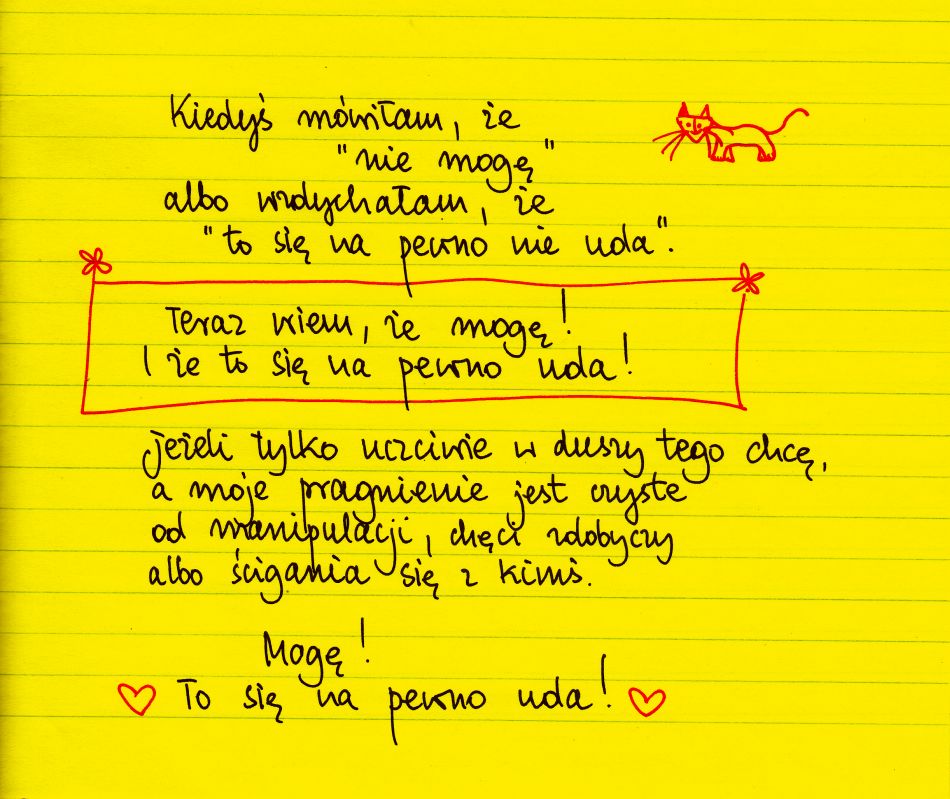 Kiedyś mówiłam, że
"nie mogę"
albo wzdychałam, że
"to się na pewno nie uda".
Teraz wiem, że mogę!
I że to się na pewno uda!
jeżeli tylko uczciwie w duszy tego chcę,
a moje pragnienie jest czyste
od manipulacji, chęci zdobyczy
albo ścigania się z kimś.
Mogę!
To się na pewno uda!